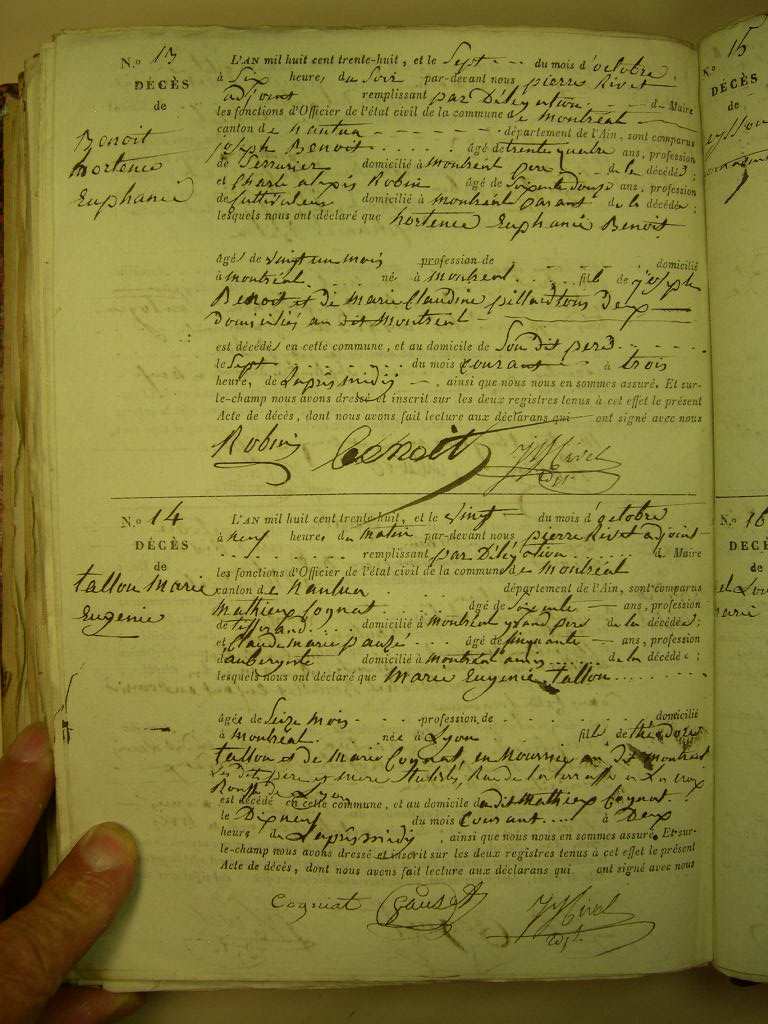 N.º 13
DÉCÈS
de
Benoit
hortence
Euphanié
L'AN mil huit cent trente-huit, et le Sept du mois d'octobre
à Six heures du Soir par-devant nous pierre Rivet
adjoint remplissant par Délégation de Maire
les fonctions d'Officier de l'état civil de la commune de Montréal
canton de Nantua département de l'Ain, sont comparus
joseph Benoit âgé de trente quatre ans, profession
de Serrurier domicilié à Montréal pere de la décédée ;
et Charle alexis Robin âgé de Soixente douze ans, profession
de Cultivateur domicilié à Montréal parant de la décédée ;
lesquels nous ont déclaré que hortence Euphanié Benoit
agée de vingt un mois profession de domicilié
à montréal née à Montreal fille de joseph
Benoit et de Marie Claudine pillard tous Deux
Domiciliés au dit Montréal
est décédée en cette commune, et au domicile de Son dit pere
le Sept du mois Courant à trois
heures de L'après midi, ainsi que nous nous en sommes assuré. Et sur-
le-champ nous avons dressé et inscrit sur les deux registres tenus à cet effet le présent
Acte de décès, dont nous avons fait lecture aux déclarans qui ont signé avec nous
Robin Benoit Rivet
adjt
N.º 14
DÉCÈS
de
tallon Marie
Eugenie
L'AN mil huit cent trente-huit, et le Vingt du mois d'octobre
à neuf heures du matin par-devant nous pierre Rivet adjoint
remplissant par Délégation de Maire
les fonctions d'Officier de l'état civil de la commune de Montréal
canton de Nantua département de l'Ain, sont comparus
Mathieux Cognat âgé de Soixente ans, profession
de tisserand domicilié à Montréal grand pere de la décédée ;
et Claude marie pauzé âgé de Cinquante ans, profession
d'aubergiste domicilié à Montréal amis de la décédée ;
lesquels nous ont déclaré que Marie Eugenie tallon
âgée de Seize mois profession de domicilié
à Montréal née à Lyon fille de théodore
tallon et de Marie Cognat, en Nourrice au dit montréal
Les dits pere et mere Rue de la terrasse en La croix
Rousse de Lyon
est décédé en cette commune, et au domicile du dit Mathieux Cognat
le Dix neuf du mois Courant à Deux
heures de L'après midi, ainsi que nous nous en sommes assuré. Et sur-
le-champ nous avons dressé et inscrit sur les deux registres tenus à cet effet le présent
Acte de décès, dont nous avons fait lecture aux déclarans qui ont signé avec nous
Cognat Rivet
adjt
N.º 15
DÉCÈS
de
N.º 16
DÉCÈS
de